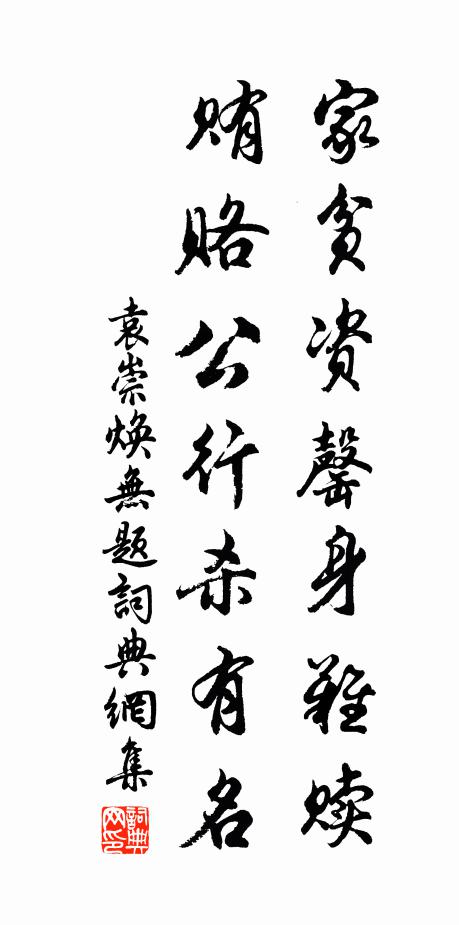 家贫资罄身难赎
贿赂公行杀有名
袁崇焕無题詞典網集
詞典网印